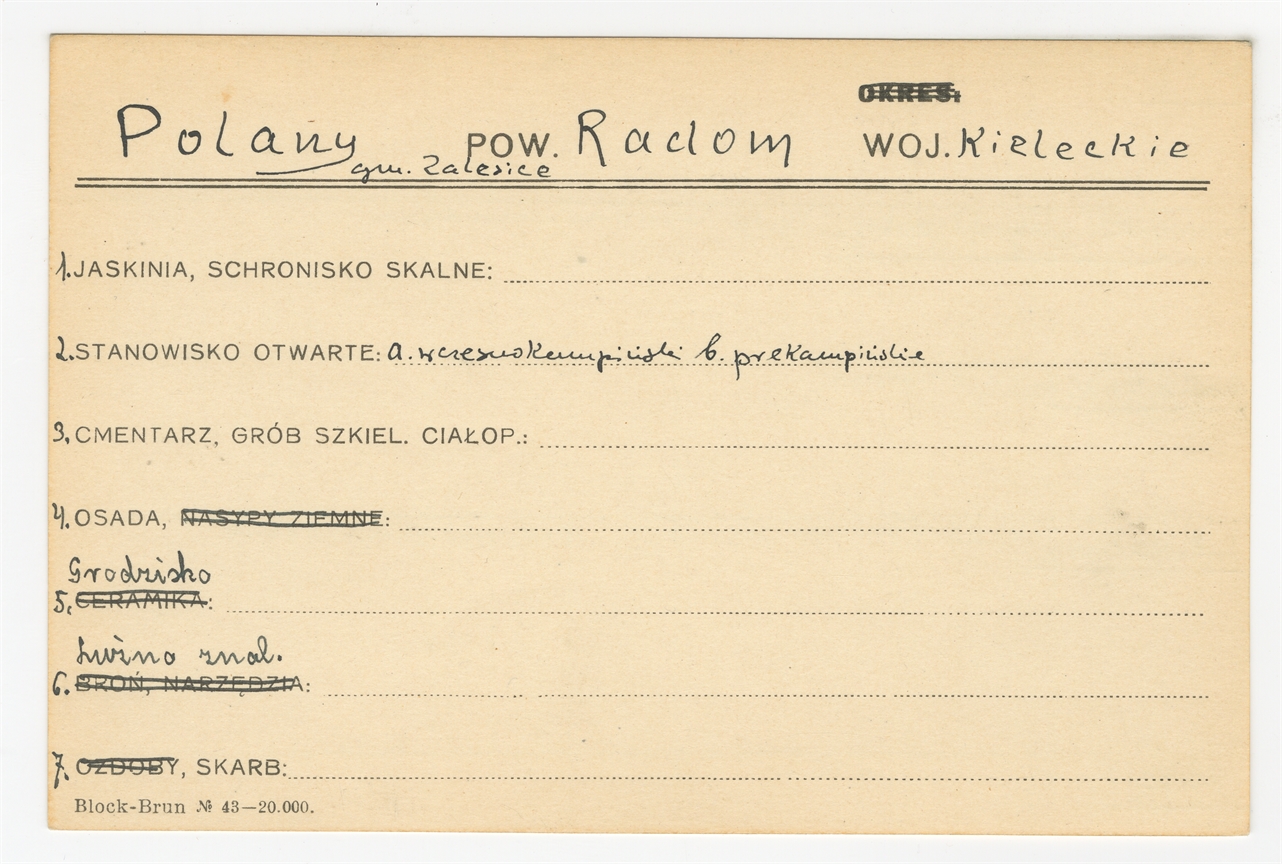 OKRES:
Polany POW. Radom WOJ. Kieleckie
gm. Zalesice
1. JASKINIA, SCHRONISKO SKALNE:
2. STANOWISKO OTWARTE: a. wczesnokampiński b. prekampińskie
3. CMENTARZ, GRÓB SZKIEL. CIAŁOP.:
4. OSADA, NASYPY ZIEMNE:
Grodzisko
5. CERAMIKA:
Luźno znal.
6. BROŃ, NARZĘDZIA:
7. OZDOBY, SKARB:
Block-Brun № 43—20.000.